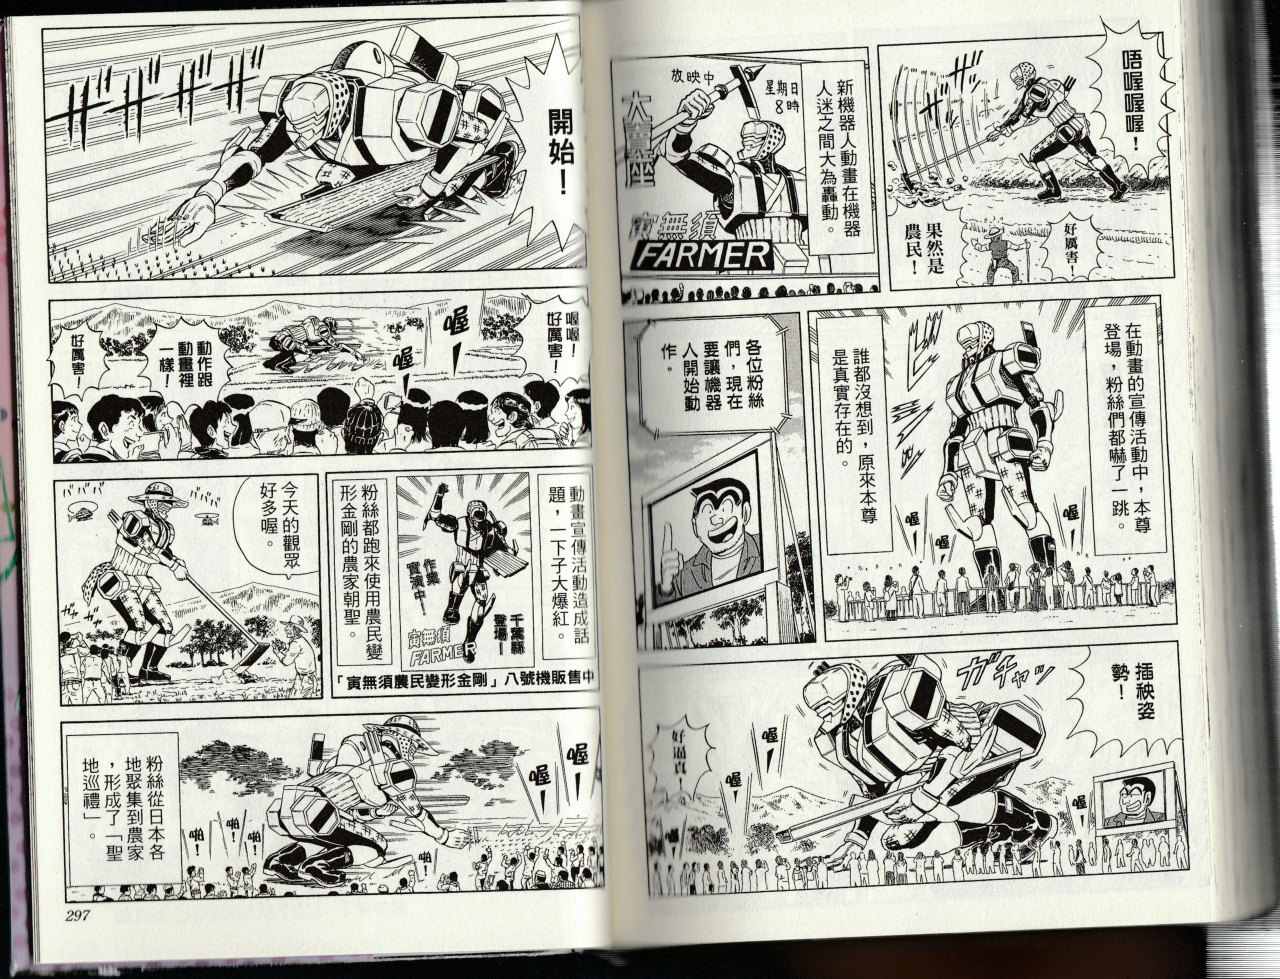 唔喔喔喔！
ザザッ
好厲害！
果然是
農民！
新機器人動畫在機器
人迷之間大為轟動。
放映中
星期日
8時
大寶座
寅無須
FARMER
在動畫的宣傳活動中，本尊
登場，粉絲們都嚇了一跳。
誰都沒想到，原來本尊
是真實存在的。
喔！
喔！
喔！
各位粉絲
們，現在
要讓機器
人開始動
作。
插秧姿
勢！
ガチャッ
喔！
喔！
喔！
好逼真！
開始！
ザザザザ
喔喔！
好厲害！
喔！
喔！
動作跟
動畫裡
一樣！
好厲害！
動畫宣傳活動造成話
題，一下子大爆紅。
千葉縣
登場！
作業
實演中！
寅無須
FARMER
粉絲都跑來使用農民變
形金剛的農家朝聖。
「寅無須農民變形金剛」八號機販售中
今天的觀眾
好多喔。
ザッ
ザッ
喔！
喔！
啪！
啪！
啪！
啪！
粉絲從日本各
地聚集到農家
，形成了「聖
地巡禮」。
297